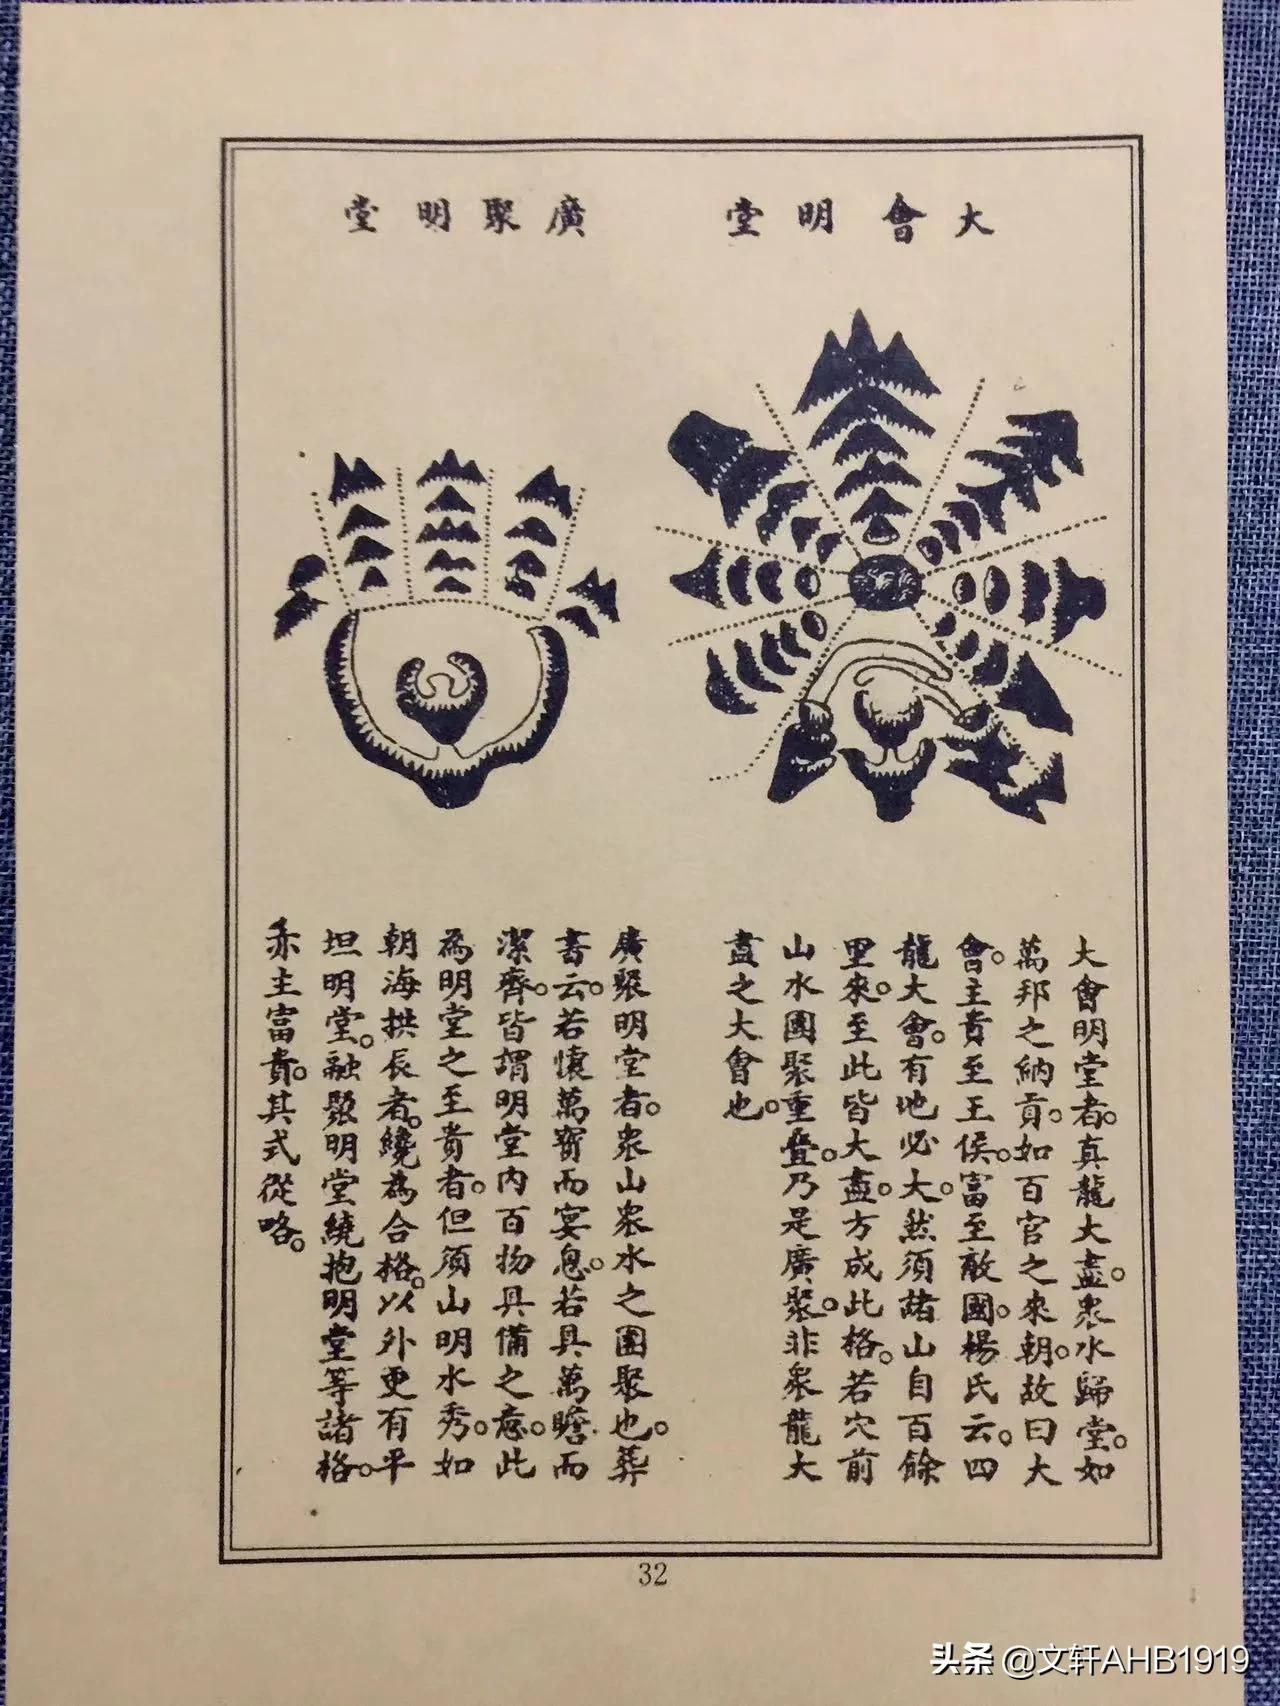 大會明堂
廣聚明堂
大會明堂者。真龍大盡。衆水歸堂。如
萬邦之納貢。如百官之來朝。故曰大
會。主貴至王侯。富至敵國。楊氏云。四
龍大會。有地必大。然須諸山自百餘
里來。至此皆大盡。方成此格。若穴前
山水團聚重疊。乃是廣聚。非衆龍大
盡之大會也。
廣聚明堂者。衆山衆水之團聚也。葬
書云。若懷萬寶而宴息。若具萬瞻而
潔齊。皆謂明堂內百物具備之意。此
為明堂之至貴者。但須山明水秀。如
朝海拱辰者。纔為合格。以外更有平
坦明堂。融聚明堂繞抱明堂等諸格。
亦主富貴。其式從略。
32
头条 @文轩AHB1919